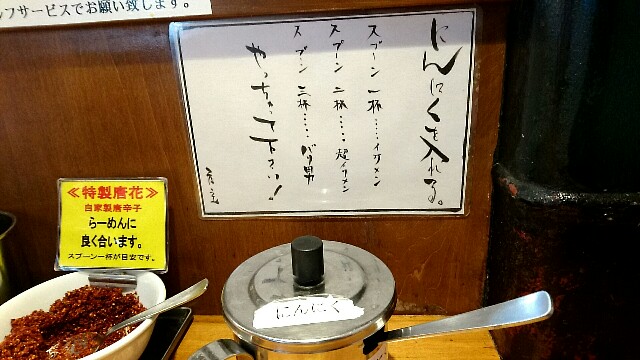 ルフサービスでお願い致します。
にんにくを入れる。
スプーン一杯‥‥‥イケメン
スプーン二杯‥‥‥超イケメン
スプーン三杯‥‥‥バリ男
やっちゃって下さい!
≪特製唐花≫
自家製唐辛子
らーめんに
良く合います。
スプーン一杯が目安です。
にんにく